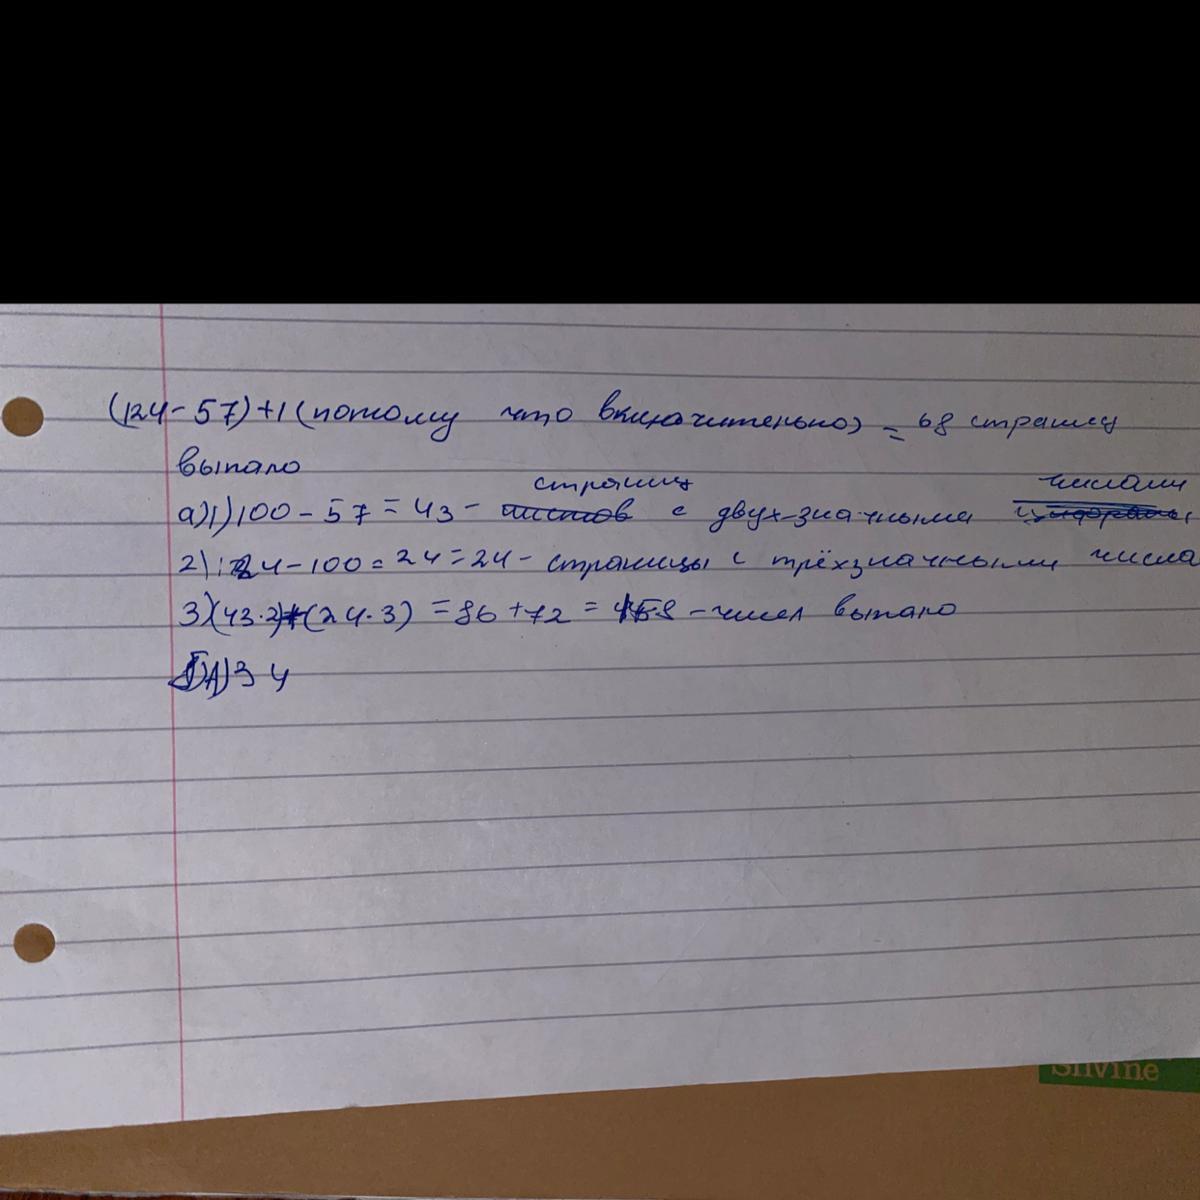 (124-57)+1(потому что включительно) = 68 страниц
выпало
страниц числами
а)1)100-57=43- листов с двухзначными цифрами
2)124-100=24=24- страницы с трёхзначными числа
3)(43·2)+(24·3)=86+72=158-чисел выпало
34
Silvine